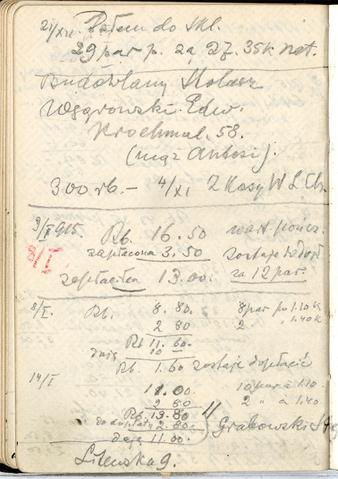 21/XII. Dałem do skl.
29 par p. za 27. 35 k. net.
Budowlany Stolarz
Węgrowski Edw.
Krochmal. 58.
(mąż Antosi).
300 rb. – 4/XI Z Kasy W. L. Ch.
3/I 915. Rb. 16.50 wart. pończ.
zapłacona 3.50 zostaje
zapłaciłem 13.00. za 12 par.
8/I. Rb. 8.80. 8 par po 1.10 k
2 80 2 " 1.40 k.
Rb 11.60.
daję 10 —
Rb. 1.60 zostaje dopłacić
14/I 11.00. 10 par à 1.10.
2.80 2 " à 1.40
Rb. 13.80
do dopłaty 2.80. Grabowski
daję 11.00.
Litewska 9.